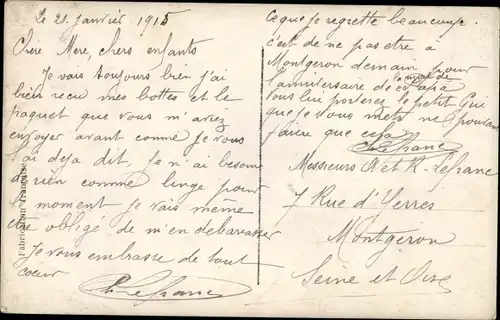 Le 21 janvier 1915
Chère Mère, chers enfants
Je vais toujours bien j'ai
bien reçu mes bottes et le
paquet que vous m'avez
envoyer avant comme je vous
l'ai deja dit, Je n'ai besoin
de rien comme linge pour
le moment je vais même
etre obligé de m'en debarasser
Je vous embrasse de tout
coeur
Ce que je regrette beaucoup
c'est de ne pas etre à
Montgeron demain pour
l'anniversaire de la mort de Papa
vous lui porterez le petit
que je vous ne pouvant
faire que cela
Messieurs N et R. Lefranc
7 Rue d'Yerres
Montgeron
Seine et Oise
Fabrication Française